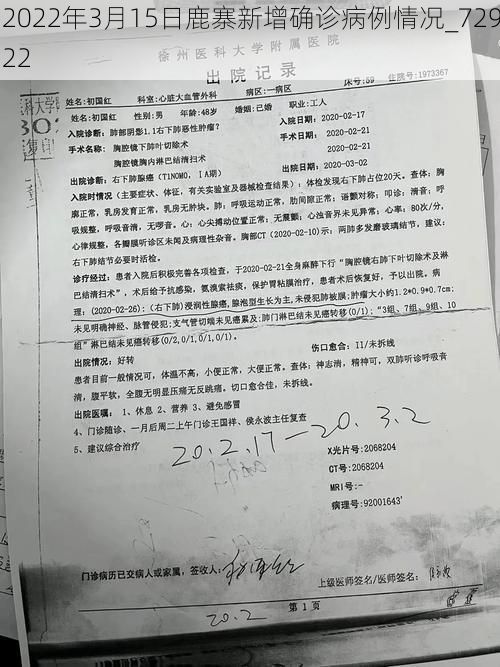 2022年3月15日鹿寨新增确诊病例情况_729
22
徐州医科大学附属医院
出院记录
姓名:初国红 科室:心脏大血管外科 病区:一病区 床号:59 住院号:1973367
性别:男 年龄:48岁 婚姻:已婚 职业:工人
入院诊断:肺部阴影1.1右下肺恶性肿瘤? 入院日期: 2020-02-17
手术名称: 胸腔镜下肺叶切除术 2020-02-21
胸腔镜胸内淋巴结清扫术 2020-02-21
出院诊断:右下肺腺癌(T1N0M0,ⅠA期) 出院日期: 2020-03-02
入院时情况(主要症状、体征,有关实验室及器械检查结果):体检发现右下肺占位20天。查体:胸
廓正常,乳房发育正常,乳房无肿块。肺:呼吸运动正常,肋间隙正常;语颤对称;叩诊:清音;呼
吸规整,呼吸音清,无啰音。心:心尖搏动位置正常;无震颤;心浊音界未见异常;心率:80次/分,
心律规整,各瓣膜听诊区未闻及病理性杂音。胸部CT(2020-02-10)示:两肺多发磨玻璃结节,建议:
右下肺结节必要时活检。
诊疗经过:患者入院后积极完善各项检查,于2020-02-21全身麻醉下行“胸腔镜右肺下叶切除术及淋
巴结清扫术”,术后给予抗感染,氨溴索祛痰,保护胃粘膜治疗,患者术后恢复好,予以出院。病
理:(2020-02-26):(右下肺)浸润性腺癌,腺泡型生长为主,未侵犯肺被膜;肿瘤大小约1.2*0.9*0.7cm;
未见明确神经、脉管侵犯;支气管切端未见癌累及;肺门淋巴结未见癌转移(0/1);“3组、7组、9组、10
组”淋巴结未见癌转移(0/2,0/1,0/1,0/1)。
出院情况:好转 伤口愈合:II/未拆线
患者目前一般情况可,体温不高,小便正常,大便正常。查体:神志清,精神可,双肺听诊呼吸音
清,腹平软,全腹无明显压痛无反跳痛。切口愈合佳,未拆线。
出院医嘱: 1、休息 2、营养 3、避免感冒
4、门诊随诊、一月后周二上午门诊王国祥、侯永波主任复查
5、建议综合治疗
20.2.17—20.3.2
X光片号:2068204
CT号:2068204
MRI号:-
病理号:92001643
门诊病历已交病人或家属,签收人:
上级医师签名/医师签名:
20.2
第1页